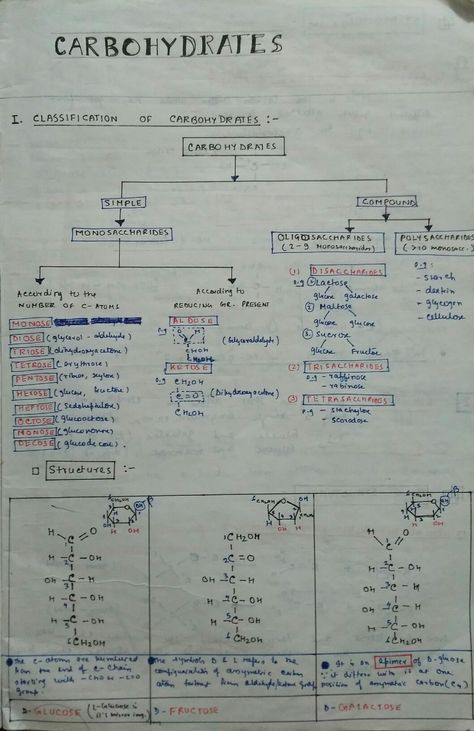 CARBOHYDRATES
I. CLASSIFICATION OF CARBOHYDRATES :-
CARBOHYDRATES
SIMPLE
COMPOUND
MONOSACCHARIDES
OLIGOSACCHARIDES
(2-9 Monosaccharides)
POLYSACCHARIDES
(>10 monosacc.)
According to the
NUMBER OF C-ATOMS
MONOSE
DIOSE (glycerol-aldehyde)
TRIOSE (dihydroxyacetone)
TETROSE (erythrose)
PENTOSE (ribose, xylose)
HEXOSE (glucose, fructose)
HEPTOSE (Sedoheptulose)
OCTOSE (glucooctose)
NONOSE (gluconanose)
DECOSE (glucodecose)
According to
REDUCING GR. PRESENT
ALDOSE
e.g
(Glyceraldehyde)
CHOH
CH2OH
KETOSE
e.g CH2OH
C=O (Dihydroxyacetone)
CH2OH
(1) DISACCHARIDES
e.g ① Lactose
glucose galactose
2. Maltose
glucose glucose
3. Sucrose
glucose Fructose
(2) TRISACCHARIDES
e.g - raffinose
- rabinose
(3) TETRASACCHARIDES
e.g - stachylose
- scorodose
e.g:
- starch
- dextrin
- glycogen
- cellulose
Structures :-
H C O
H - 2C - OH
OH - 3C - H
H - 4C - OH
H - 5C - OH
6CH2OH
1CH2OH
2C = O
OH - 3C - H
H - 4C - OH
H - 5C - OH
6CH2OH
H C O
H - 2C - OH
OH - 3C - H
OH - 4C - H
H - 5C - OH
6CH2OH
The C-atoms are numbered
from the end of C-chain
starting with
group.
The symbols D & L refers to the
configuration of assymetric carbon
atom farthest from aldehyde/ketone group
It is an Epimer of D-glucose
∵ it differs with it at one
position of assymetric carbon (C4)
D-GLUCOSE
D-FRUCTOSE
D-GALACTOSE